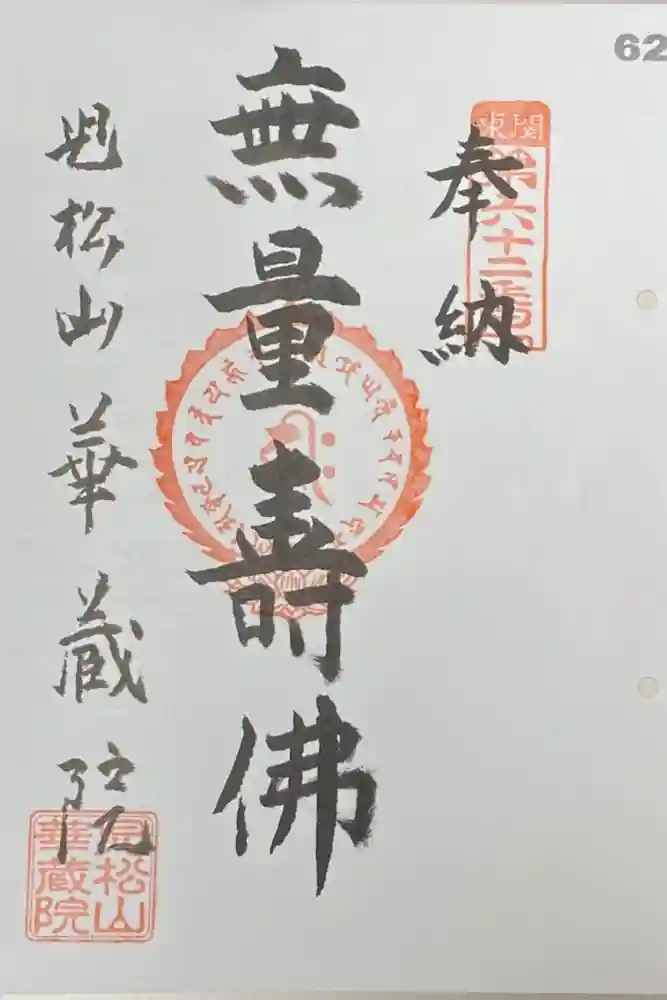 62
奉納
関東
第六十二番
無量壽佛
見松山 華蔵院
見松山
華蔵院